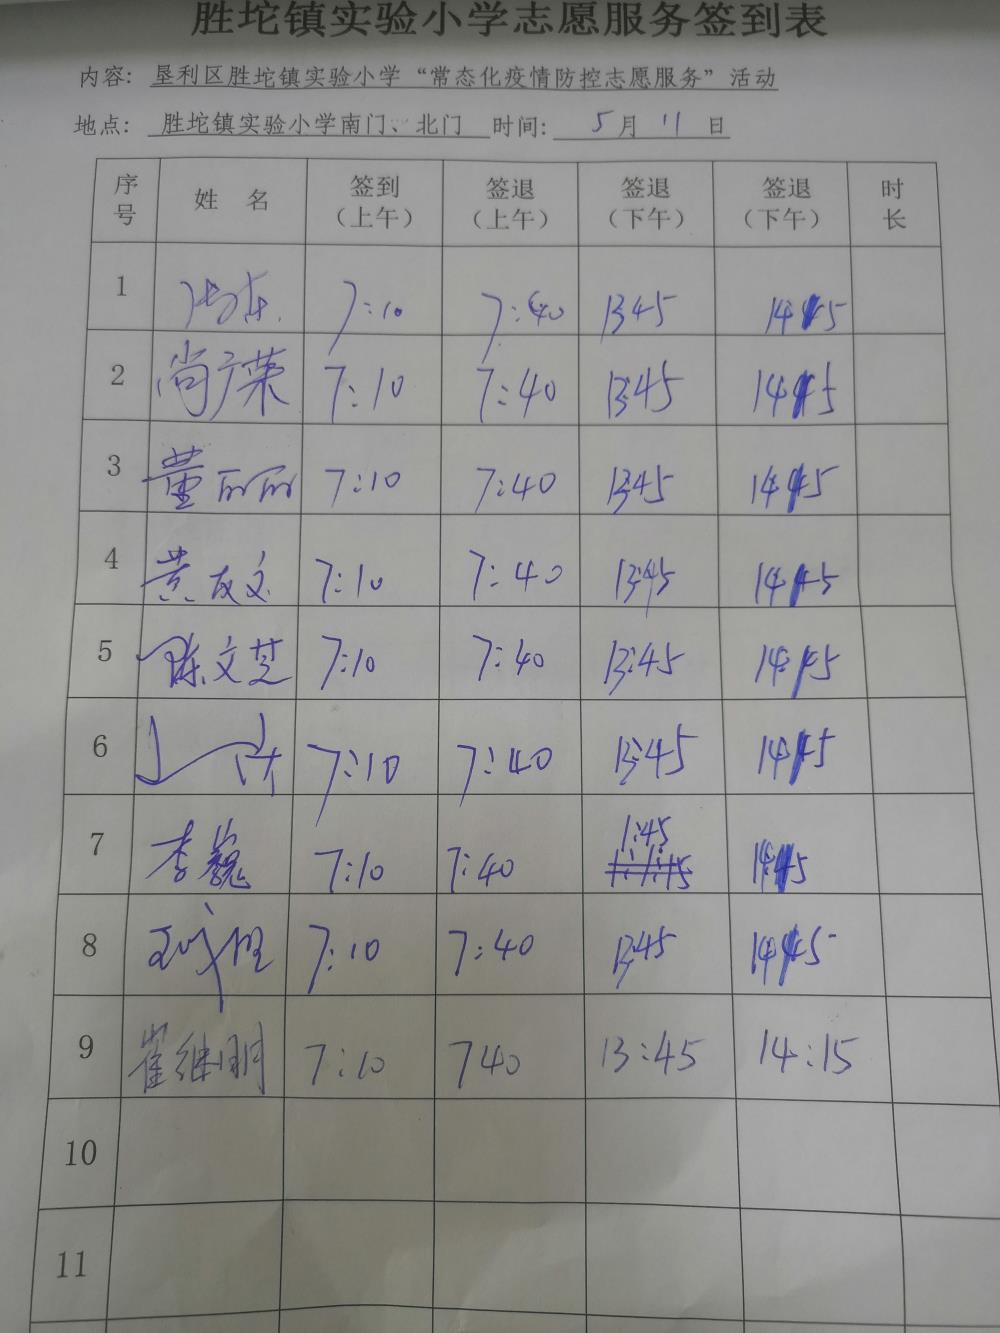 胜坨镇实验小学志愿服务签到表
内容: 垦利区胜坨镇实验小学“常态化疫情防控志愿服务”活动
地点: 胜坨镇实验小学南门、北门 时间: 5 月 11 日
序号 姓 名 签到（上午） 签退（上午） 签退（下午） 签退（下午） 时长
1 7:10 7:40 13:45
2 尚广荣 7:10 7:40 13:45
3 董丽丽 7:10 7:40 13:45
4 黄友文 7:10 7:40 13:45
5 陈文芝 7:10 7:40 13:45
6 7:10 7:40 13:45
7 李巍 7:10 7:40 1:45
8 7:10 7:40 13:45
9 崔继明 7:10 740 13:45 14:15
10
11